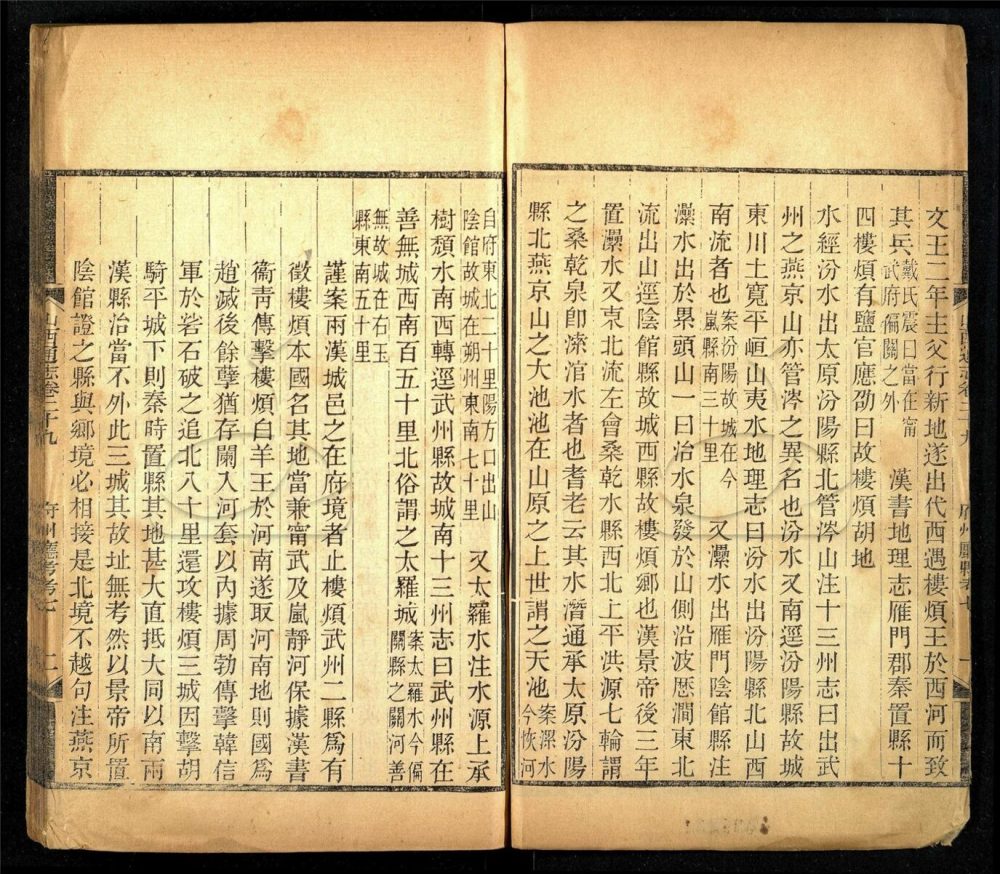 文王二年主父行新地遂出代西遇樓煩王於西河而致
其兵戴氏震曰當在甯武府偏關之外　漢書地理志雁門郡秦置縣十
四樓煩有鹽官應劭曰故樓煩胡地
水經汾水出太原汾陽縣北管涔山注十三州志曰出武
州之燕京山亦管涔之異名也汾水又南逕汾陽縣故城
東川土寬平峘山夷水地理志曰汾水出汾陽縣北山西
南流者也案汾陽故城在今嵐縣南三十里　又灅水出雁門陰館縣注
灅水出於累頭山一曰治水泉發於山側沿波歷澗東北
流出山逕陰館縣故城西縣故樓煩鄉也漢景帝後三年
置灅水又東北流左會桑乾水縣西北上平洪源七輪謂
之桑乾泉卽溹涫水者也耆老云其水潛通承太原汾陽
縣北燕京山之大池池在山原之上世謂之天池案漯水今恢河
自府東北二十里陽方口出山陰館故城在朔州東南七十里　又太羅水注水源上承
樹頹水南西轉逕武州縣故城南十三州志曰武州縣在
善無城西南百五十里北俗謂之太羅城案太羅水今偏關縣之關河善
無故城在右玉縣東南五十里
謹案兩漢城邑之在府境者止樓煩武州二縣爲有
徵樓煩本國名其地當兼甯武及嵐靜河保據漢書
衞青傳擊樓煩白羊王於河南遂取河南地則國爲
趙滅後餘孽猶存闌入河套以內據周勃傳擊韓信
軍於硰石破之追北八十里還攻樓煩三城因擊胡
騎平城下則秦時置縣其地甚大直抵大同以南兩
漢縣治當不外此三城其故址無考然以景帝所置
陰館證之縣與鄉境必相接是北境不越句注燕京
山西通志卷二十九　府州廳縣考七　二